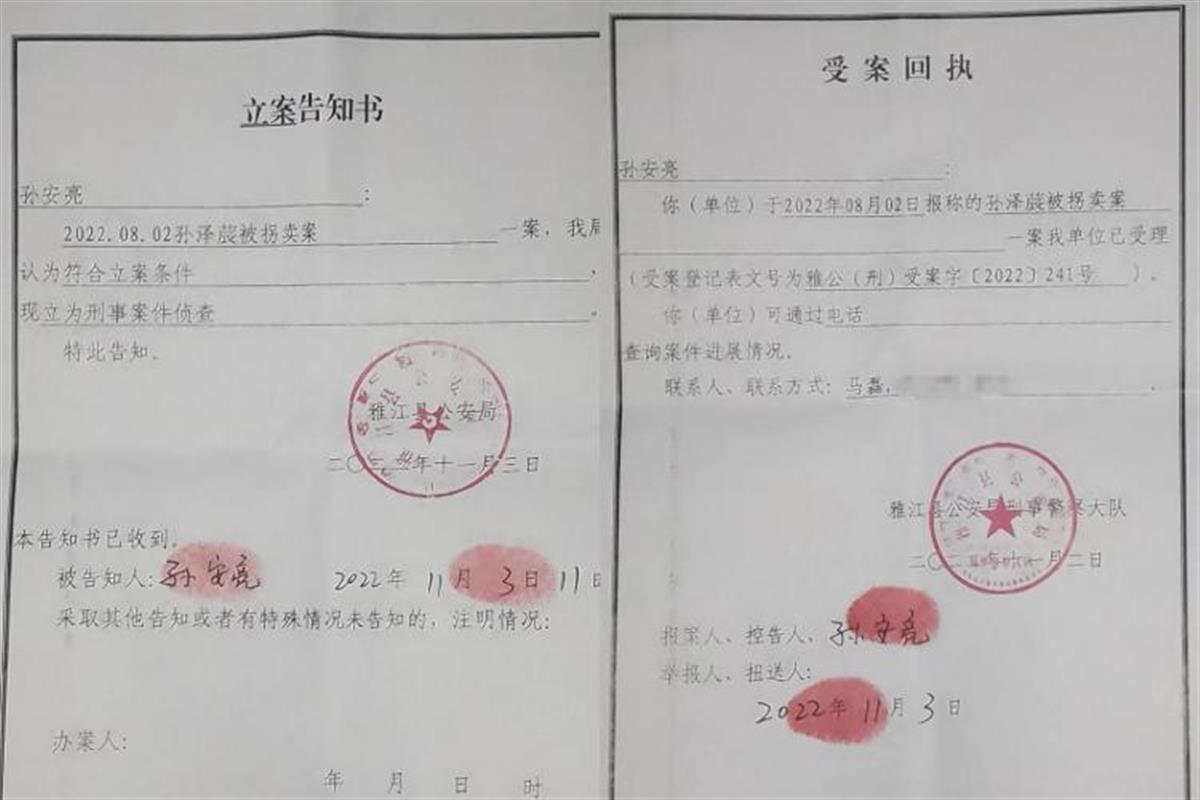 立案告知书
孙安亮:
2022.08.02孙泽蔙被拐卖案一案，我局
认为符合立案条件，
现立为刑事案件侦查。
特此告知。
雅江县公安局
二〇二二年十一月三日
本告知书已收到。
被告知人:孙安亮 2022年11月3日11时
采取其他告知或者有特殊情况未告知的，注明情况:
办案人:
年 月 日 时
受案回执
孙安亮:
你（单位）于2022年08月02日报称的孙泽蔙被拐卖案
一案我单位已受理
（受案登记表文号为雅公（刑）受案字〔2022〕241号）。
你（单位）可通过电话
查询案件进展情况.
联系人、联系方式:马磊，
雅江县公安局刑事警察大队
二〇二二年十一月二日
报案人、控告人、孙安亮
举报人、扭送人:
2022年11月3日